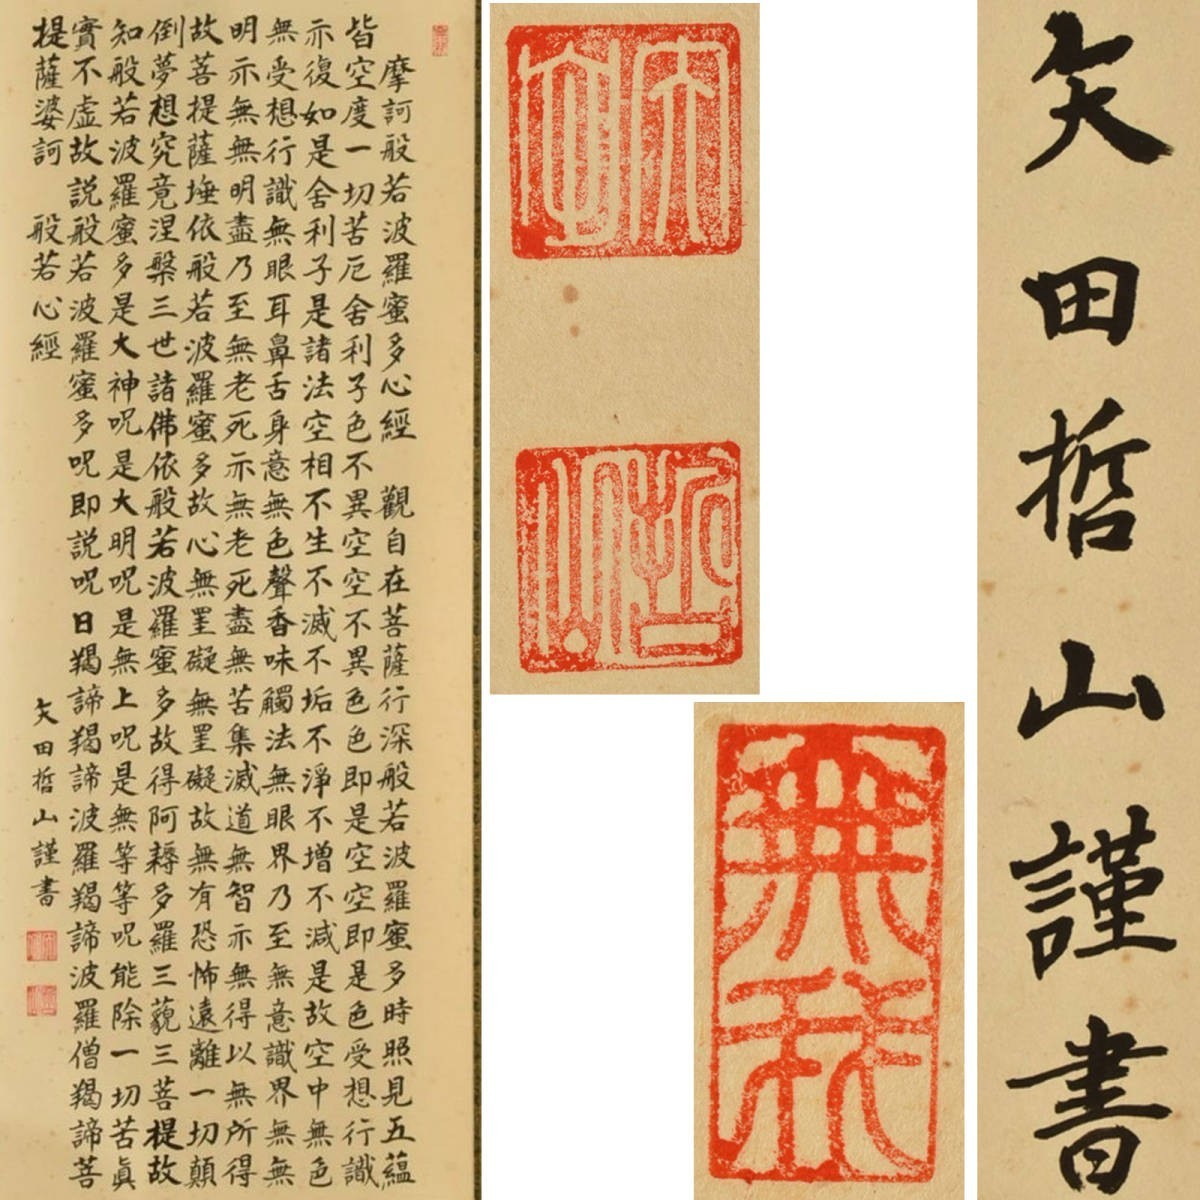 摩訶般若波羅蜜多心經 觀自在菩薩行深般若波羅蜜多時照見五蘊
皆空度一切苦厄舍利子色不異空空不異色色即是空空即是色受想行識
亦復如是舍利子是諸法空相不生不滅不垢不淨不增不減是故空中無色
無受想行識無眼耳鼻舌身意無色聲香味觸法無眼界乃至無意識界無無
明亦無無明盡乃至無老死亦無老死盡無苦集滅道無智亦無得以無所得
故菩提薩埵依般若波羅蜜多故心無罣礙無罣礙故無有恐怖遠離一切顛
倒夢想究竟涅槃三世諸佛依般若波羅蜜多故得阿耨多羅三藐三菩提故
知般若波羅蜜多是大神呪是大明呪是無上呪是無等等呪能除一切苦眞
實不虛故説般若波羅蜜多呪即説呪曰羯諦羯諦波羅羯諦波羅僧羯諦菩
提薩婆訶 般若心經
矢田哲山謹書
無我
矢田哲山謹書